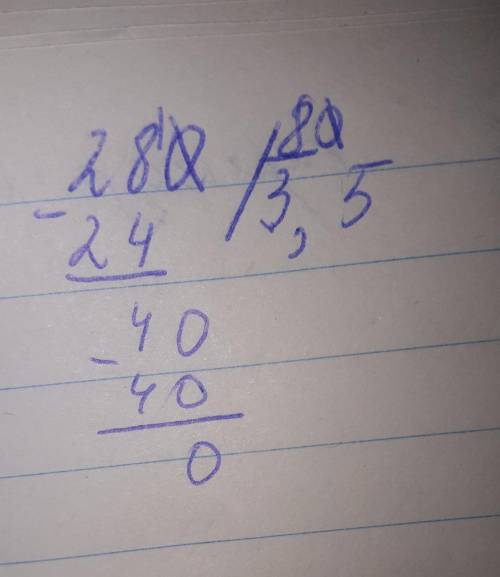 280 / 80
- 24 3,5
40
- 40
0